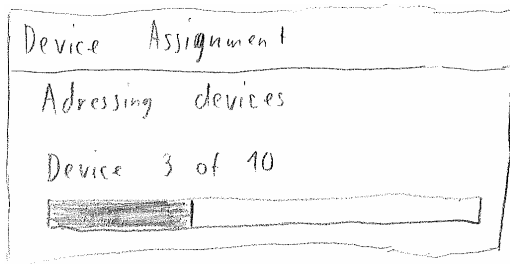 Device Assignment
Adressing devices
Device 3 of 10